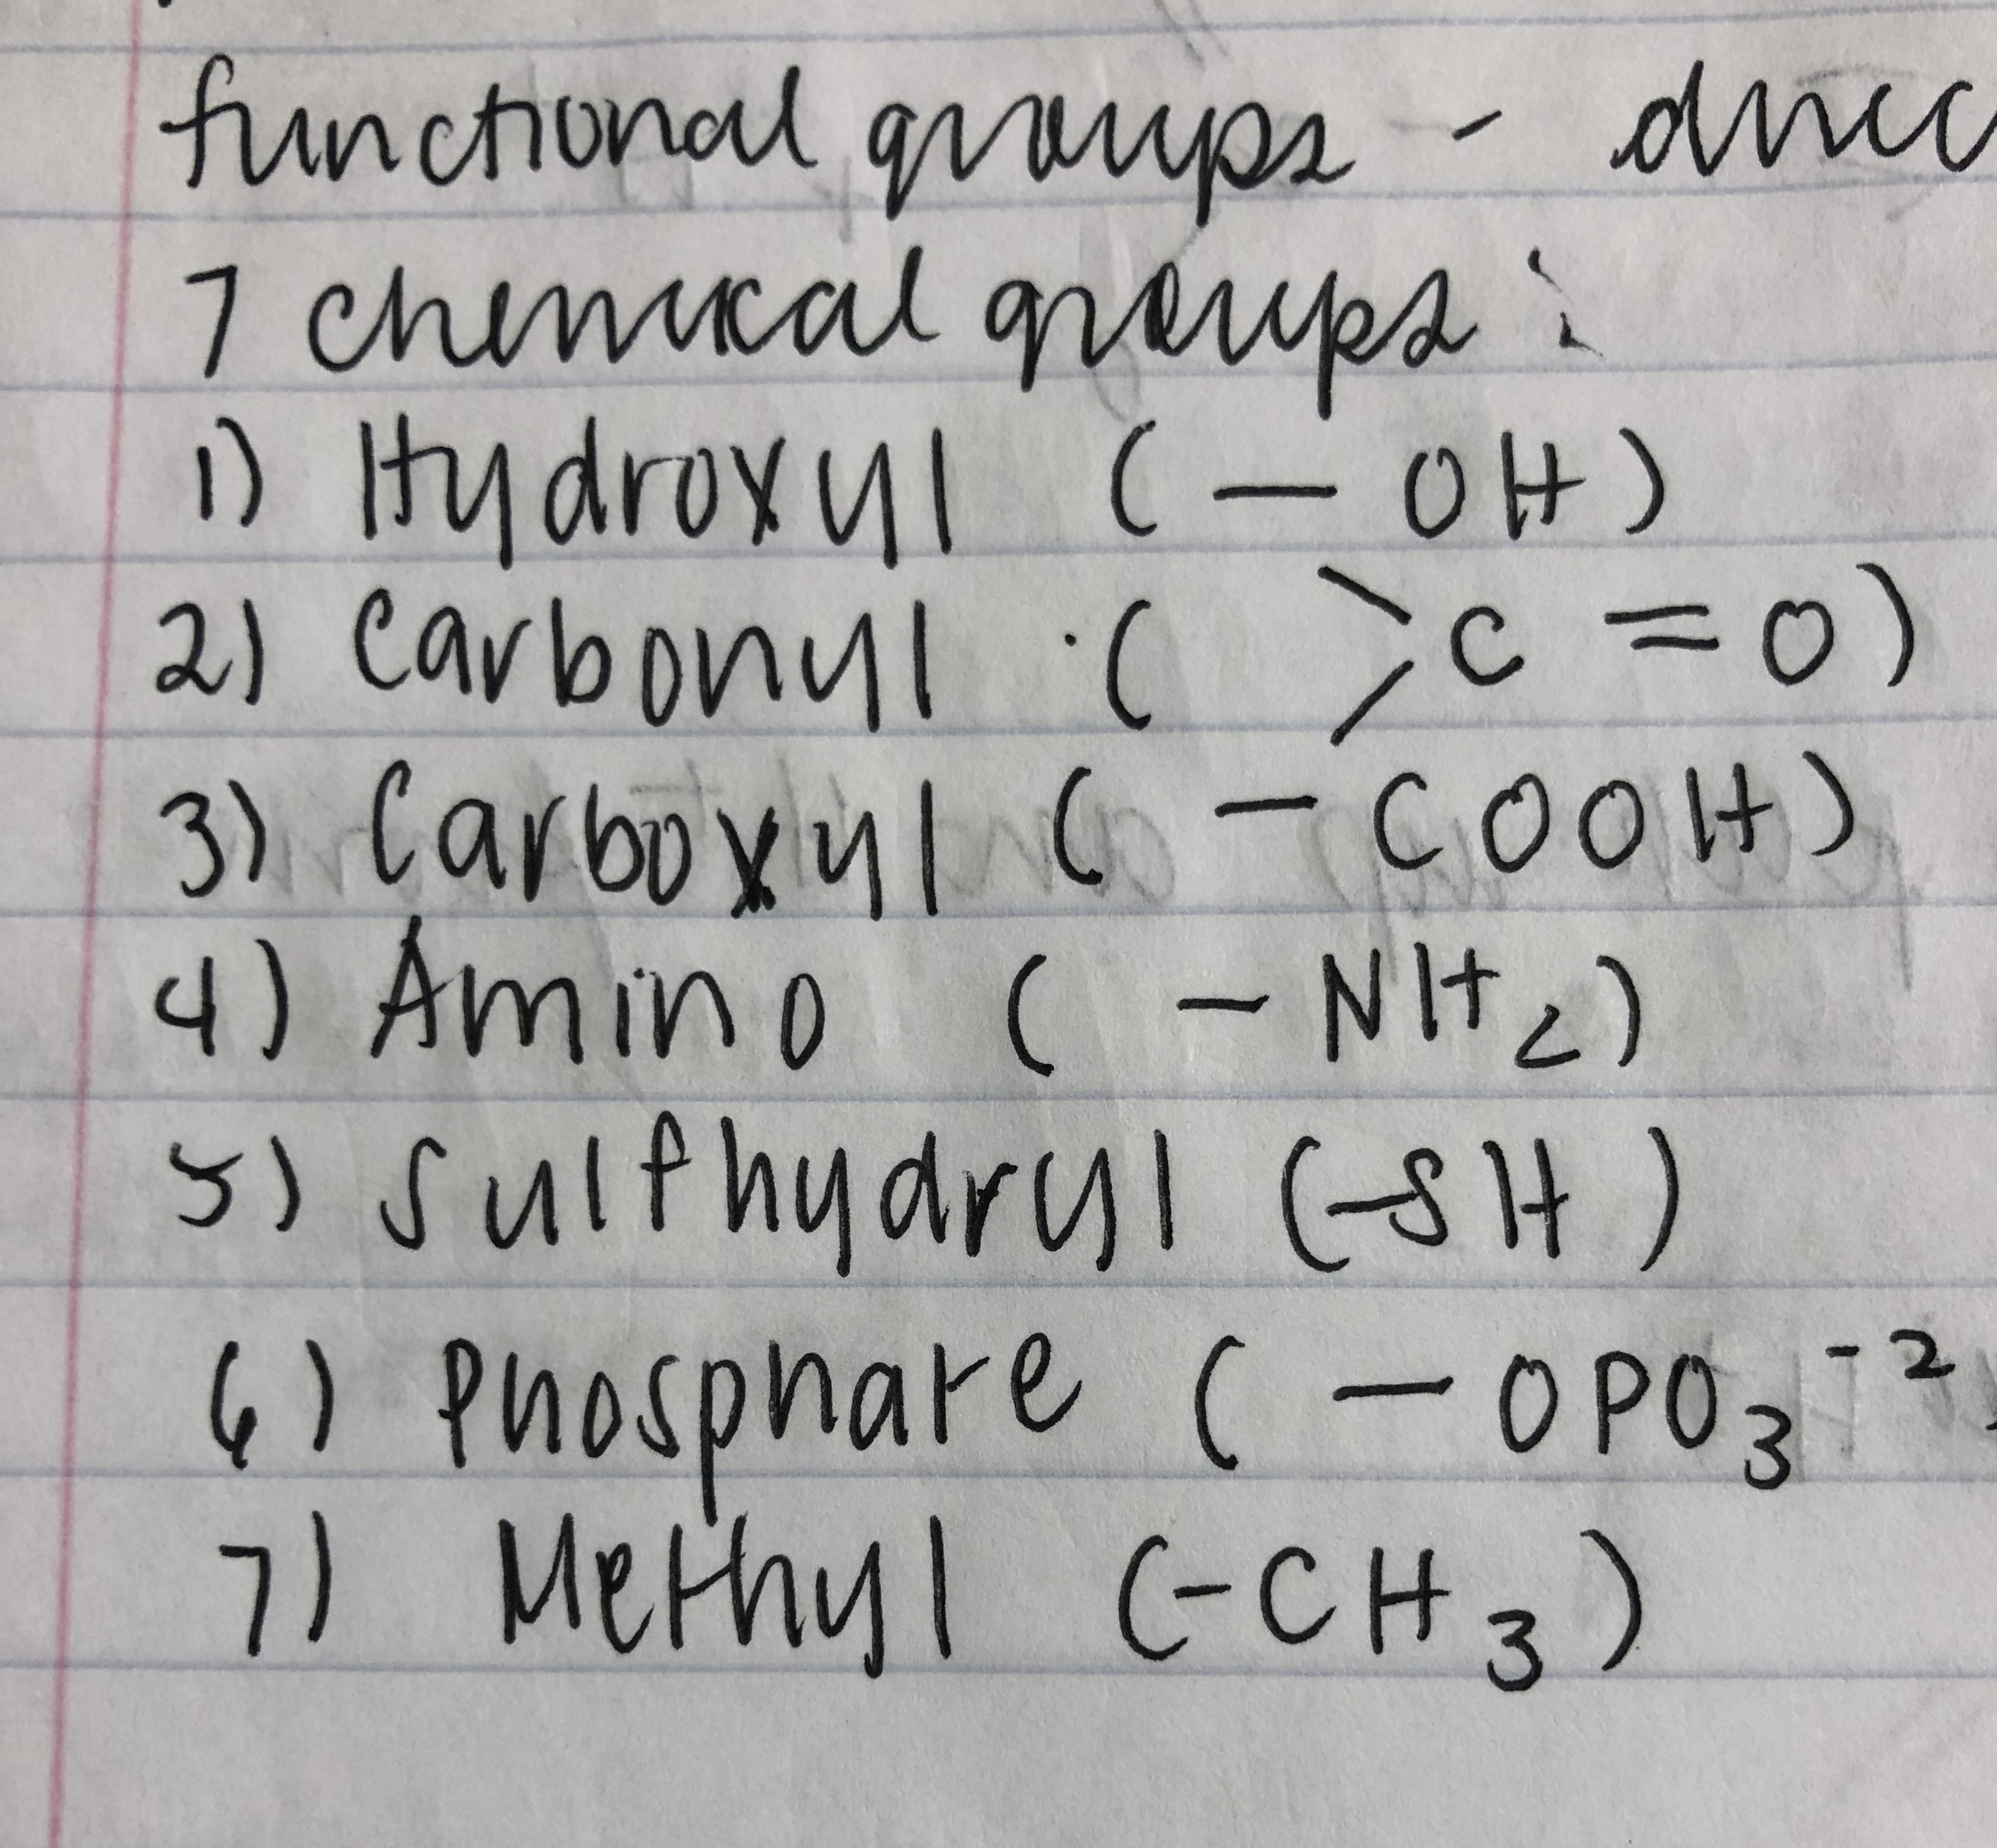 functional groups - direc
7 chemical groups :
1) Hydroxyl ( — OH )
2) Carbonyl ( >C = O)
3) Carboxyl ( — COOH)
4) Amino ( — NH₂)
5) Sulfhydryl (-SH )
6) Phosphate ( — OPO₃⁻²)
7) Methyl (-CH₃)